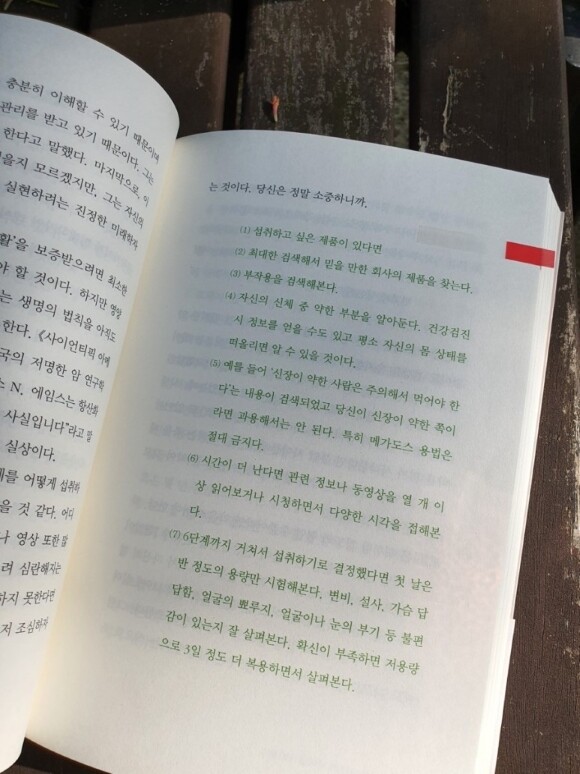 충분히 이해할 수 있기 때문이며
관리를 받고 있기 때문이다. 그는
한다고 말했다. 마지막으로, 이
을지 모르겠지만, 그는 자신의
실현하려는 진정한 미래학자
활'을 보증받으려면 최소한
야 할 것이다. 하지만 영양
는 생명의 법칙을 아직도
한다. 《사이언티픽 아메
국의 저명한 암 연구학
스 N. 에임스는 항산화
사실입니다"라고 말
실상이다.
제를 어떻게 섭취하
을 것 같다. 어디
나 영상 또한 많
려 심란해지는
하지 못한다면
저 조심하자
는 것이다. 당신은 정말 소중하니까.
(1) 섭취하고 싶은 제품이 있다면
(2) 최대한 검색해서 믿을 만한 회사의 제품을 찾는다.
(3) 부작용을 검색해본다.
(4) 자신의 신체 중 약한 부분을 알아둔다. 건강검진
시 정보를 얻을 수도 있고 평소 자신의 몸 상태를
떠올리면 알 수 있을 것이다.
(5) 예를 들어 '신장이 약한 사람은 주의해서 먹어야 한
다'는 내용이 검색되었고 당신이 신장이 약한 쪽이
라면 과용해서는 안 된다. 특히 메가도스 용법은
절대 금지다.
(6) 시간이 더 난다면 관련 정보나 동영상을 열 개 이
상 읽어보거나 시청하면서 다양한 시각을 접해본
다.
(7) 6단계까지 거쳐서 섭취하기로 결정했다면 첫 날은
반 정도의 용량만 시험해본다. 변비, 설사, 가슴 답
답함, 얼굴의 뾰루지, 얼굴이나 눈의 부기 등 불편
감이 있는지 잘 살펴본다. 확신이 부족하면 저용량
으로 3일 정도 더 복용하면서 살펴본다.